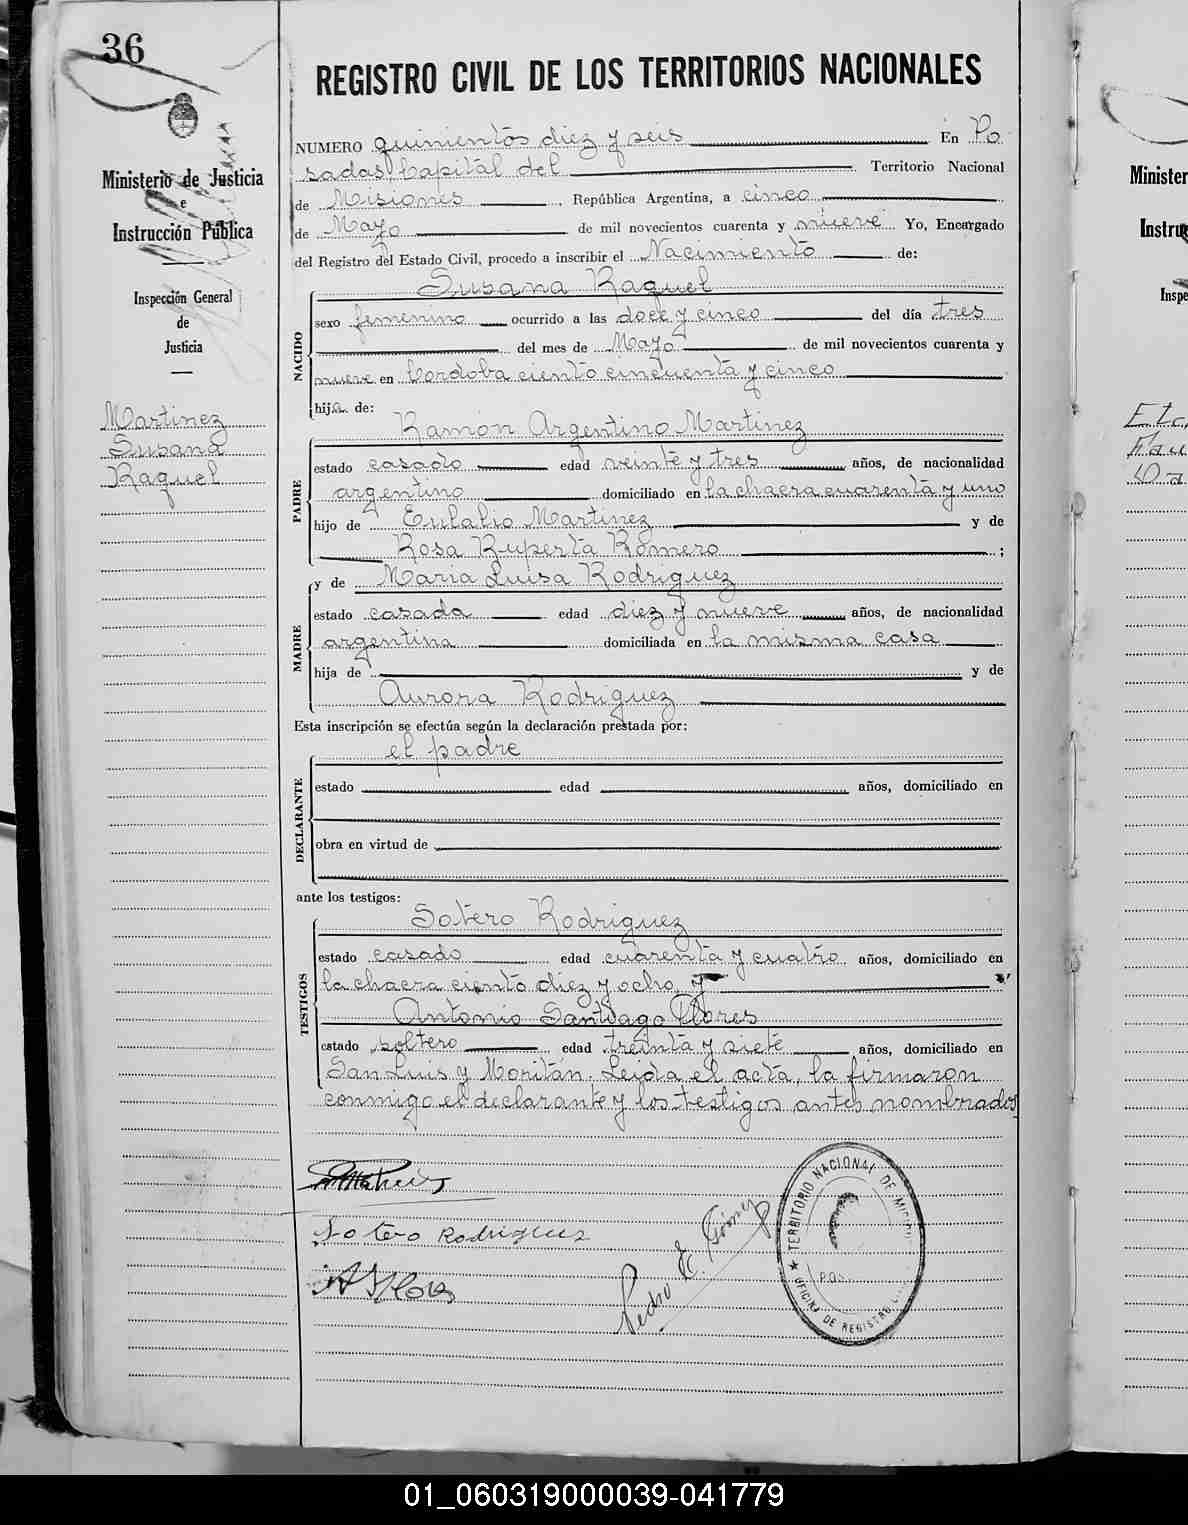 36
Ministerio de Justicia
e
Instrucción Pública
Inspección General
de
Justicia
Martinez
Susana
Raquel
REGISTRO CIVIL DE LOS TERRITORIOS NACIONALES
NUMERO quinientos diez y seis En Po
sadas Capital del Territorio Nacional
de Misiones, República Argentina, a cinco
de Mayo de mil novecientos cuarenta y nueve Yo, Encargado
del Registro del Estado Civil, procedo a inscribir el Nacimiento de:
NACIDO
Susana Raquel
sexo femenino ocurrido a las doce y cinco del día tres
del mes de Mayo de mil novecientos cuarenta y
nueve en Cordoba ciento cincuenta y cinco
hija de:
PADRE
Ramón Argentino Martinez
estado casado edad veinte y tres años, de nacionalidad
argentino domiciliado en la chacra cuarenta y uno
hijo de Eulalio Martinez y de
Rosa Ruperta Romero ;
MADRE
y de Maria Luisa Rodriguez
estado casada edad diez y nueve años, de nacionalidad
argentina domiciliada en la misma casa
hija de y de
Aurora Rodriguez
Esta inscripción se efectúa según la declaración prestada por:
DECLARANTE
el padre
estado edad años, domiciliado en
obra en virtud de
ante los testigos:
TESTIGOS
Sotero Rodriguez
estado casado edad cuarenta y cuatro años, domiciliado en
la chacra ciento diez y ocho, y
Antonio Santiago Flores
estado soltero edad treinta y siete años, domiciliado en
San Luis y Moritán. Leida el acta, la firmaron
conmigo el declarante y los testigos antes nombrados
Sotero Rodriguez
Pedro E. Gómez
TERRITORIO NACIONAL DE MISIONES
POS
OFICINA DE REGISTRO
Minister
Instru
Inspe
01_060319000039-041779